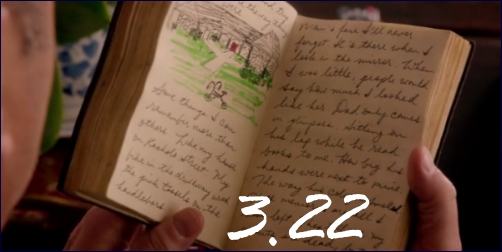 Some things I can
remember more than
others. Like my house
on Kanoho Street. My
bike in the driveway with
the pink tassels on the
handlebars.
Mom's face I'll never
forget. It's there when I
look in the mirror. When
I was little, people would
say how much I looked
like her. Dad only comes
in glimpses. Sitting on
his lap while he read
books to me. How big his
hands were next to mine.
The way his
left
3.22